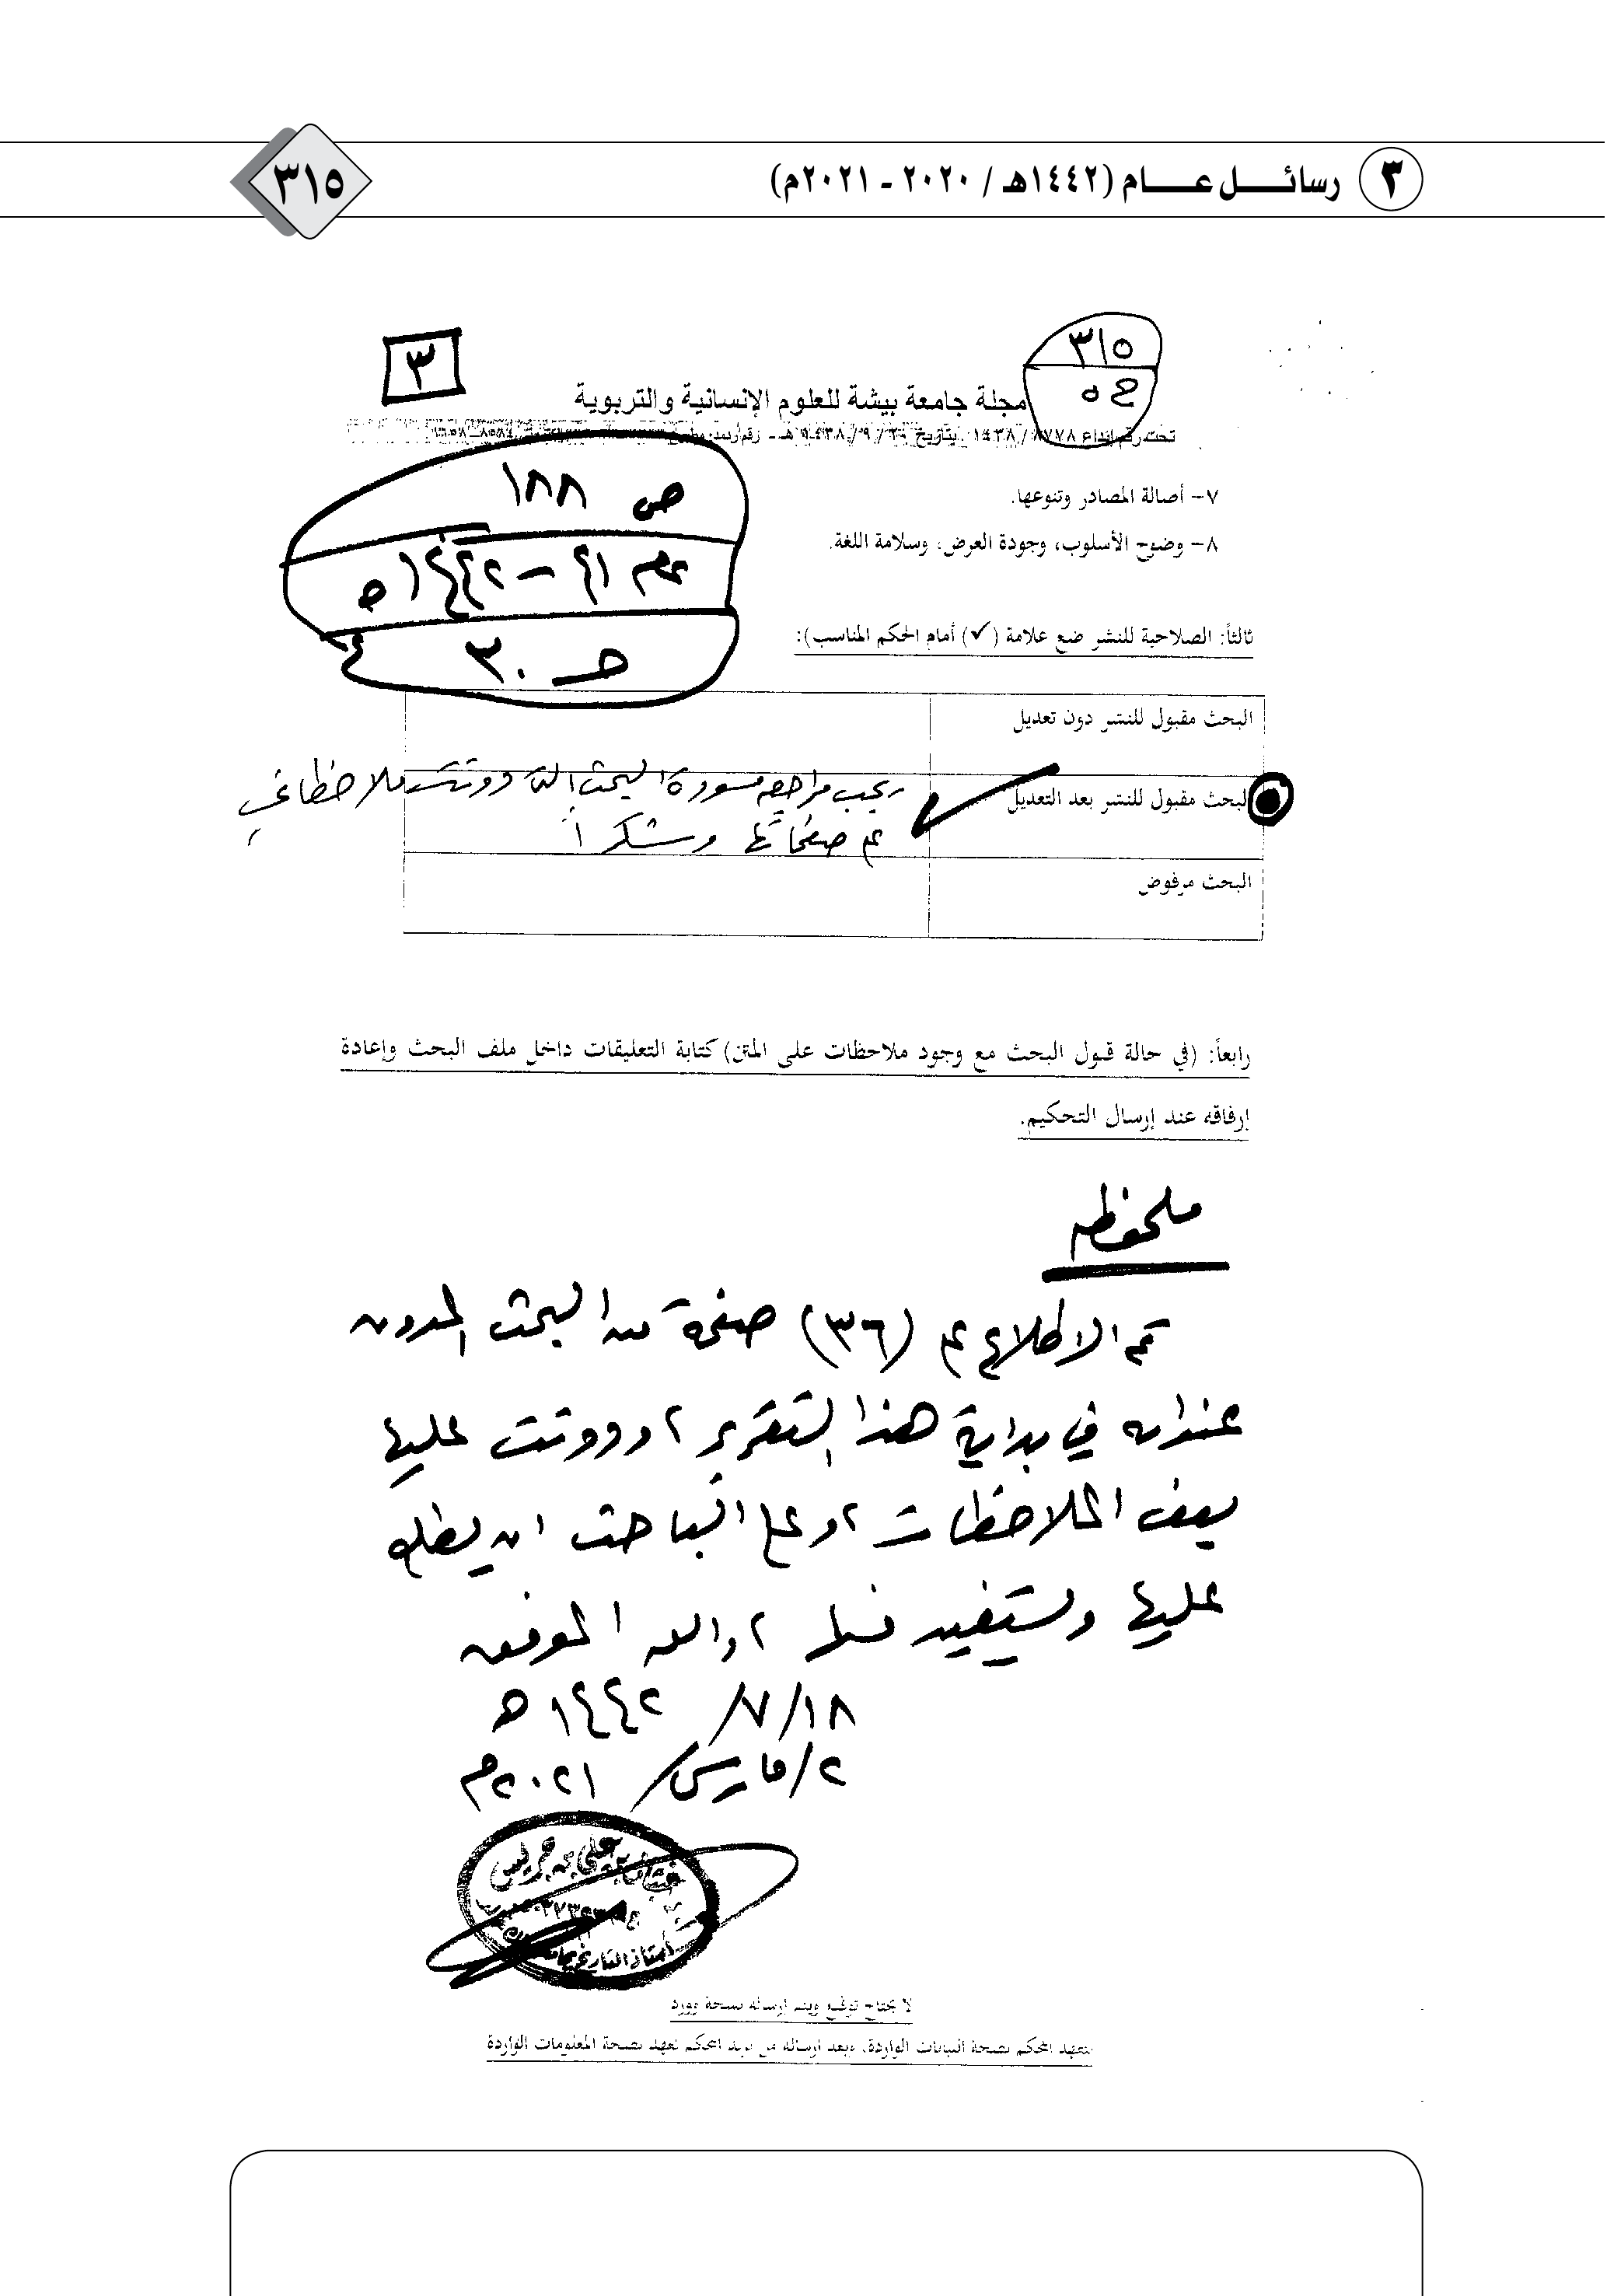 ٣ رسائل عام (١٤٤٢هـ / ٢٠٢٠ - ٢٠٢١م) ٣١٥
٣١٥
٣
مجلة جامعة بيشة للعلوم الإنسانية والتربوية
تحت رقم إيداع ١٤٣٨/٨٧٧٨ بتاريخ
٧- أصالة المصادر وتنوعها.
٨- وضوح الأسلوب، وجودة العرض، وسلامة اللغة.
ص ١٨٨
عام ٤١ - ١٤٤٢هـ
حـ ٣٠
ثالثاً: الصلاحية للنشر ضع علامة (✓) أمام الحكم المناسب):
البحث مقبول للنشر دون تعديل
البحث مقبول للنشر بعد التعديل
يجب مراجعة مسودة البحث التي دونت ملاحظاتي
على صفحاتها وشكراً
البحث مرفوض
رابعاً: (في حالة قبول البحث مع وجود ملاحظات على المتن) كتابة التعليقات داخل ملف البحث وإعادة
إرفاقه عند إرسال التحكيم.
ملحوظه
تم الاطلاع على (٣٦) صفحة من البحث المدون
عنوانه في بداية هذا التقرير، ودونت عليها
بعض الملاحظات، وعلى الباحث ان يطلع
عليها ويستفيد منها، والله الموفق
١٨/٧/ ١٤٤٢هـ
٢/مارس/ ٢٠٢١م
بن علي بن جريس
أستاذ التاريخ
لا يحتاج توقيع ويتم إرساله نسخة وورد
يتعهد المحكم بصحة البيانات الواردة، ويعد ارساله من بريد المحكم تعهد بصحة المعلومات الواردة